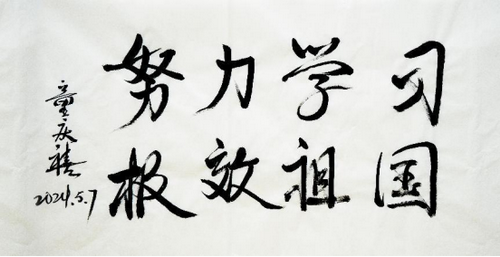 努力学习
报效祖国
童庆禧
2024.5.7